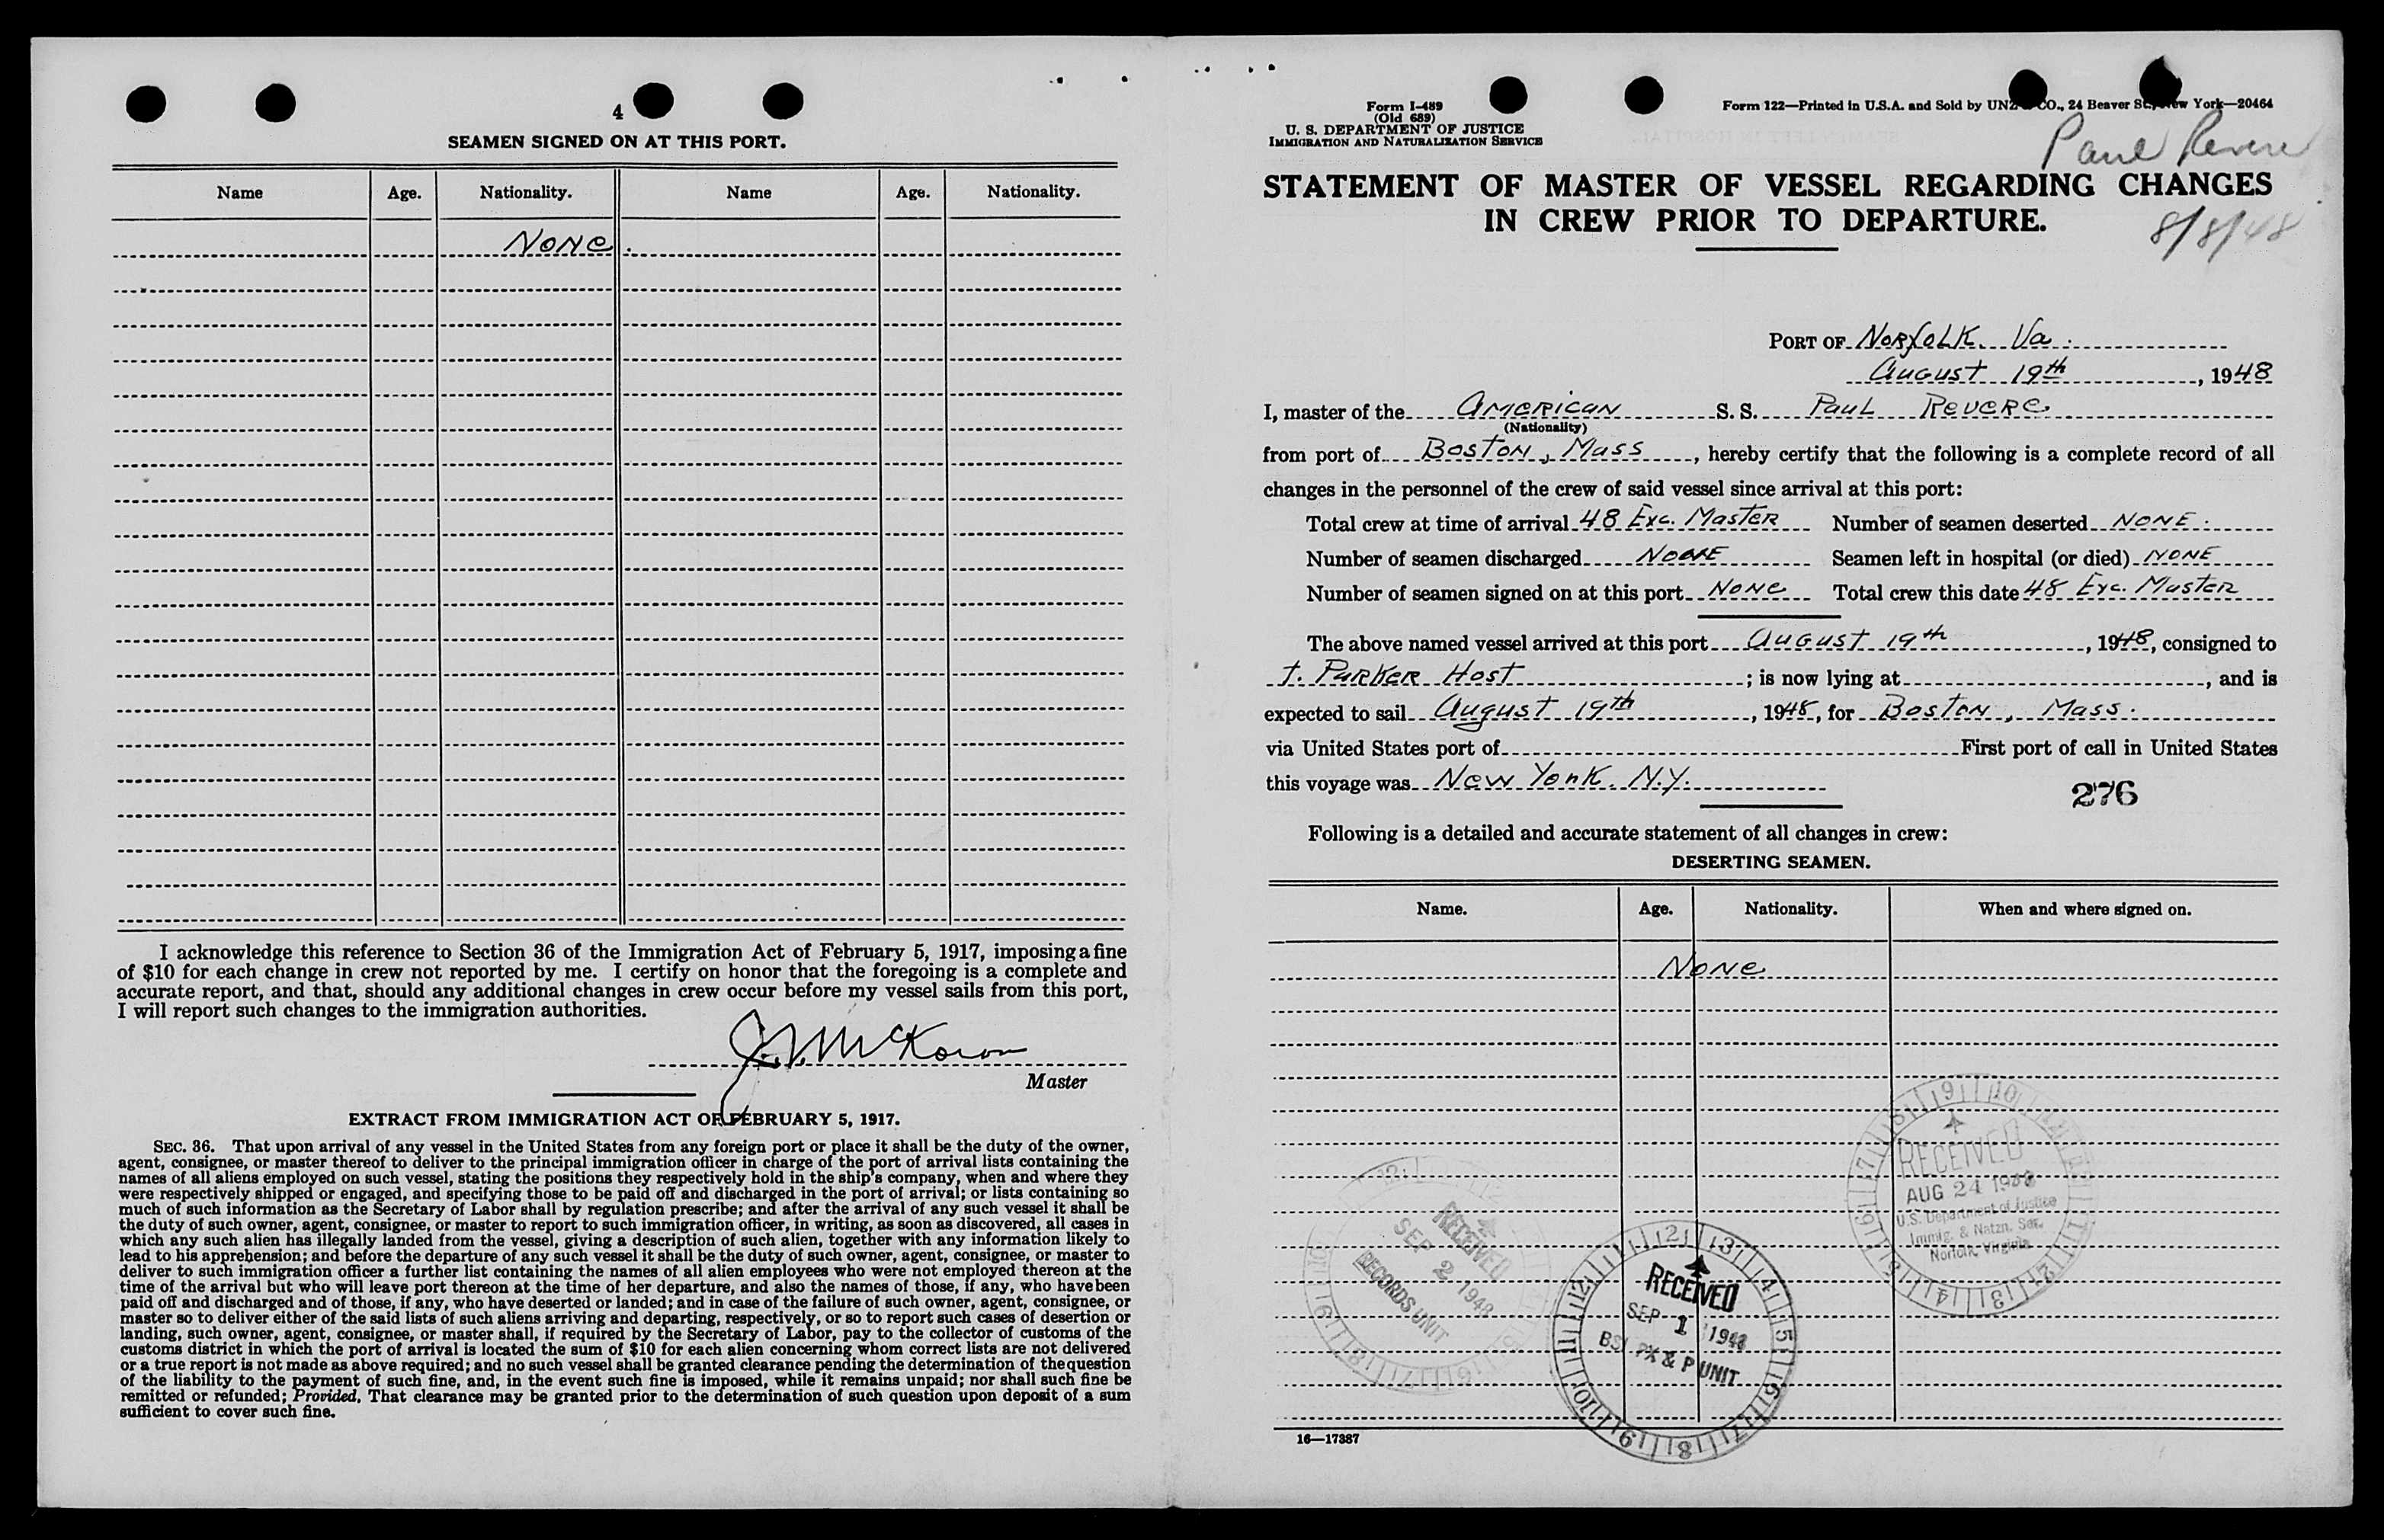 4
SEAMEN SIGNED ON AT THIS PORT.
Name Age. Nationality. Name Age. Nationality.
None.
I acknowledge this reference to Section 36 of the Immigration Act of February 5, 1917, imposing a fine
of $10 for each change in crew not reported by me. I certify on honor that the foregoing is a complete and
accurate report, and that, should any additional changes in crew occur before my vessel sails from this port,
I will report such changes to the immigration authorities.
Master
EXTRACT FROM IMMIGRATION ACT OF FEBRUARY 5, 1917.
SEC. 36. That upon arrival of any vessel in the United States from any foreign port or place it shall be the duty of the owner,
agent, consignee, or master thereof to deliver to the principal immigration officer in charge of the port of arrival lists containing the
names of all aliens employed on such vessel, stating the positions they respectively hold in the ship's company, when and where they
were respectively shipped or engaged, and specifying those to be paid off and discharged in the port of arrival; or lists containing so
much of such information as the Secretary of Labor shall by regulation prescribe; and after the arrival of any such vessel it shall be
the duty of such owner, agent, consignee, or master to report to such immigration officer, in writing, as soon as discovered, all cases in
which any such alien has illegally landed from the vessel, giving a description of such alien, together with any information likely to
lead to his apprehension; and before the departure of any such vessel it shall be the duty of such owner, agent, consignee, or master to
deliver to such immigration officer a further list containing the names of all alien employees who were not employed thereon at the
time of the arrival but who will leave port thereon at the time of her departure, and also the names of those, if any, who have been
paid off and discharged and of those, if any, who have deserted or landed; and in case of the failure of such owner, agent, consignee, or
master so to deliver either of the said lists of such aliens arriving and departing, respectively, or so to report such cases of desertion or
landing, such owner, agent, consignee, or master shall, if required by the Secretary of Labor, pay to the collector of customs of the
customs district in which the port of arrival is located the sum of $10 for each alien concerning whom correct lists are not delivered
or a true report is not made as above required; and no such vessel shall be granted clearance pending the determination of the question
of the liability to the payment of such fine, and, in the event such fine is imposed, while it remains unpaid; nor shall such fine be
remitted or refunded; Provided, That clearance may be granted prior to the determination of such question upon deposit of a sum
sufficient to cover such fine.
Form I-489
(Old 689)
U. S. DEPARTMENT OF JUSTICE
IMMIGRATION AND NATURALIZATION SERVICE
Form 122—Printed in U.S.A. and Sold by UNZ CO., 24 Beaver St., New York—20464
Paul Revere
STATEMENT OF MASTER OF VESSEL REGARDING CHANGES
IN CREW PRIOR TO DEPARTURE.
8/8/48
PORT OF Norfolk Va.
August 19th, 1948
I, master of the American S. S. Paul Revere
(Nationality)
from port of Boston, Mass, hereby certify that the following is a complete record of all
changes in the personnel of the crew of said vessel since arrival at this port:
Total crew at time of arrival 48 Exc. Master Number of seamen deserted NONE.
Number of seamen discharged NONE Seamen left in hospital (or died) NONE
Number of seamen signed on at this port None Total crew this date 48 Exc. Master
The above named vessel arrived at this port August 19th, 1948, consigned to
T. Parker Host; is now lying at , and is
expected to sail August 19th, 1948, for Boston, Mass.
via United States port of First port of call in United States
this voyage was New York. N.Y.
276
Following is a detailed and accurate statement of all changes in crew:
DESERTING SEAMEN.
Name. Age. Nationality. When and where signed on.
None
RECEIVED
AUG 24 1948
U.S. Department of Justice
Immig. & Natzn. Ser.
Norfolk, Virginia
RECEIVED
SEP 2 1948
RECORDS UNIT
RECEIVED
SEP 1 1948
UNIT
16—17387